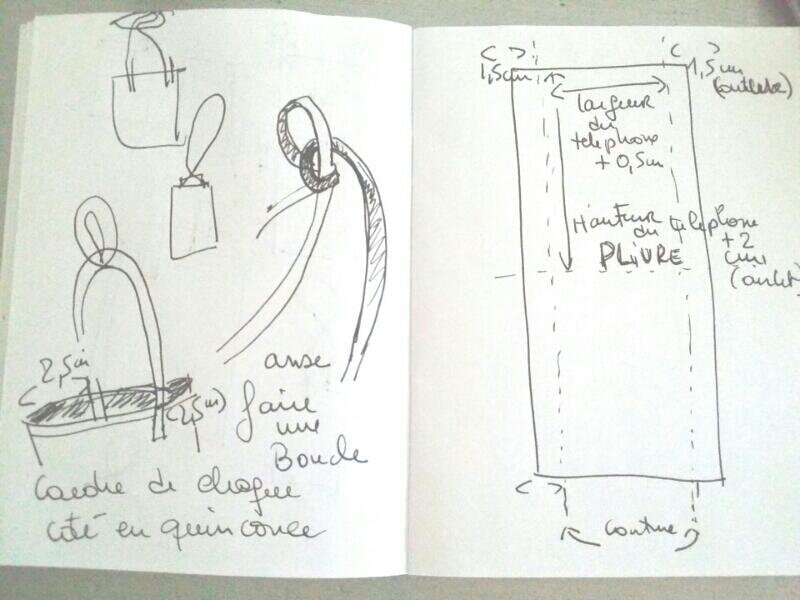 2,5cm
2,5cm
anse
faire
une
Boucle
Coudre de chaque
côté en quinconce
1,5cm
1,5cm
(ourlet)
largeur
du
telephone
+ 0,5cm
Hauteur du telephone
+2
cm
(ourlet)
PLIURE
couture